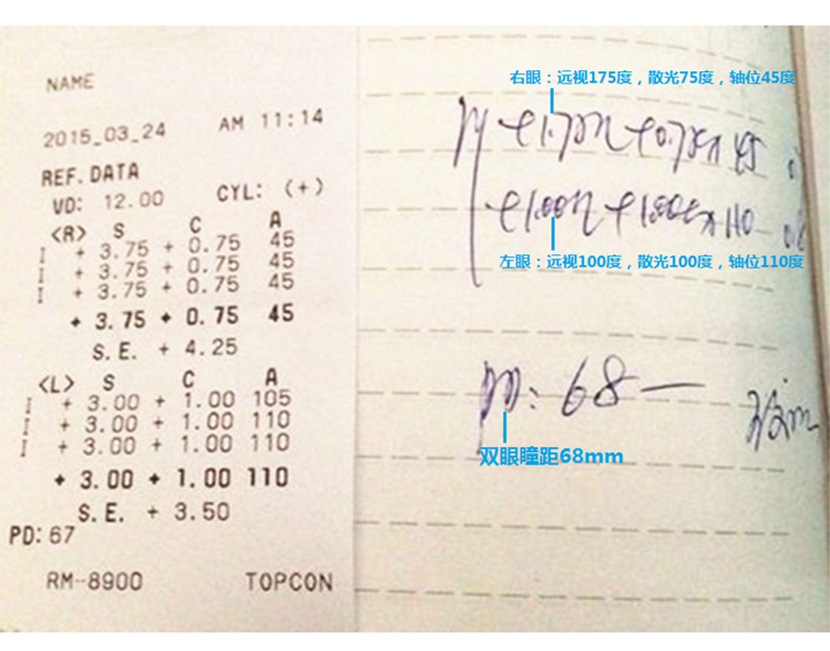 NAME
2015_03_24 AM 11:14
REF. DATA
VD: 12.00 CYL: (+)
<R> S C A
I + 3.75 + 0.75 45
I + 3.75 + 0.75 45
I + 3.75 + 0.75 45
+ 3.75 + 0.75 45
S.E. + 4.25
<L> S C A
I + 3.00 + 1.00 105
I + 3.00 + 1.00 110
I + 3.00 + 1.00 110
+ 3.00 + 1.00 110
S.E. + 3.50
PD: 67
RM-8900 TOPCON
右眼：远视175度，散光75度，轴位45度
+1.75 +0.75 x 45
+1.00 +1.00 x 110
左眼：远视100度，散光100度，轴位110度
: 68 —
双眼瞳距68mm